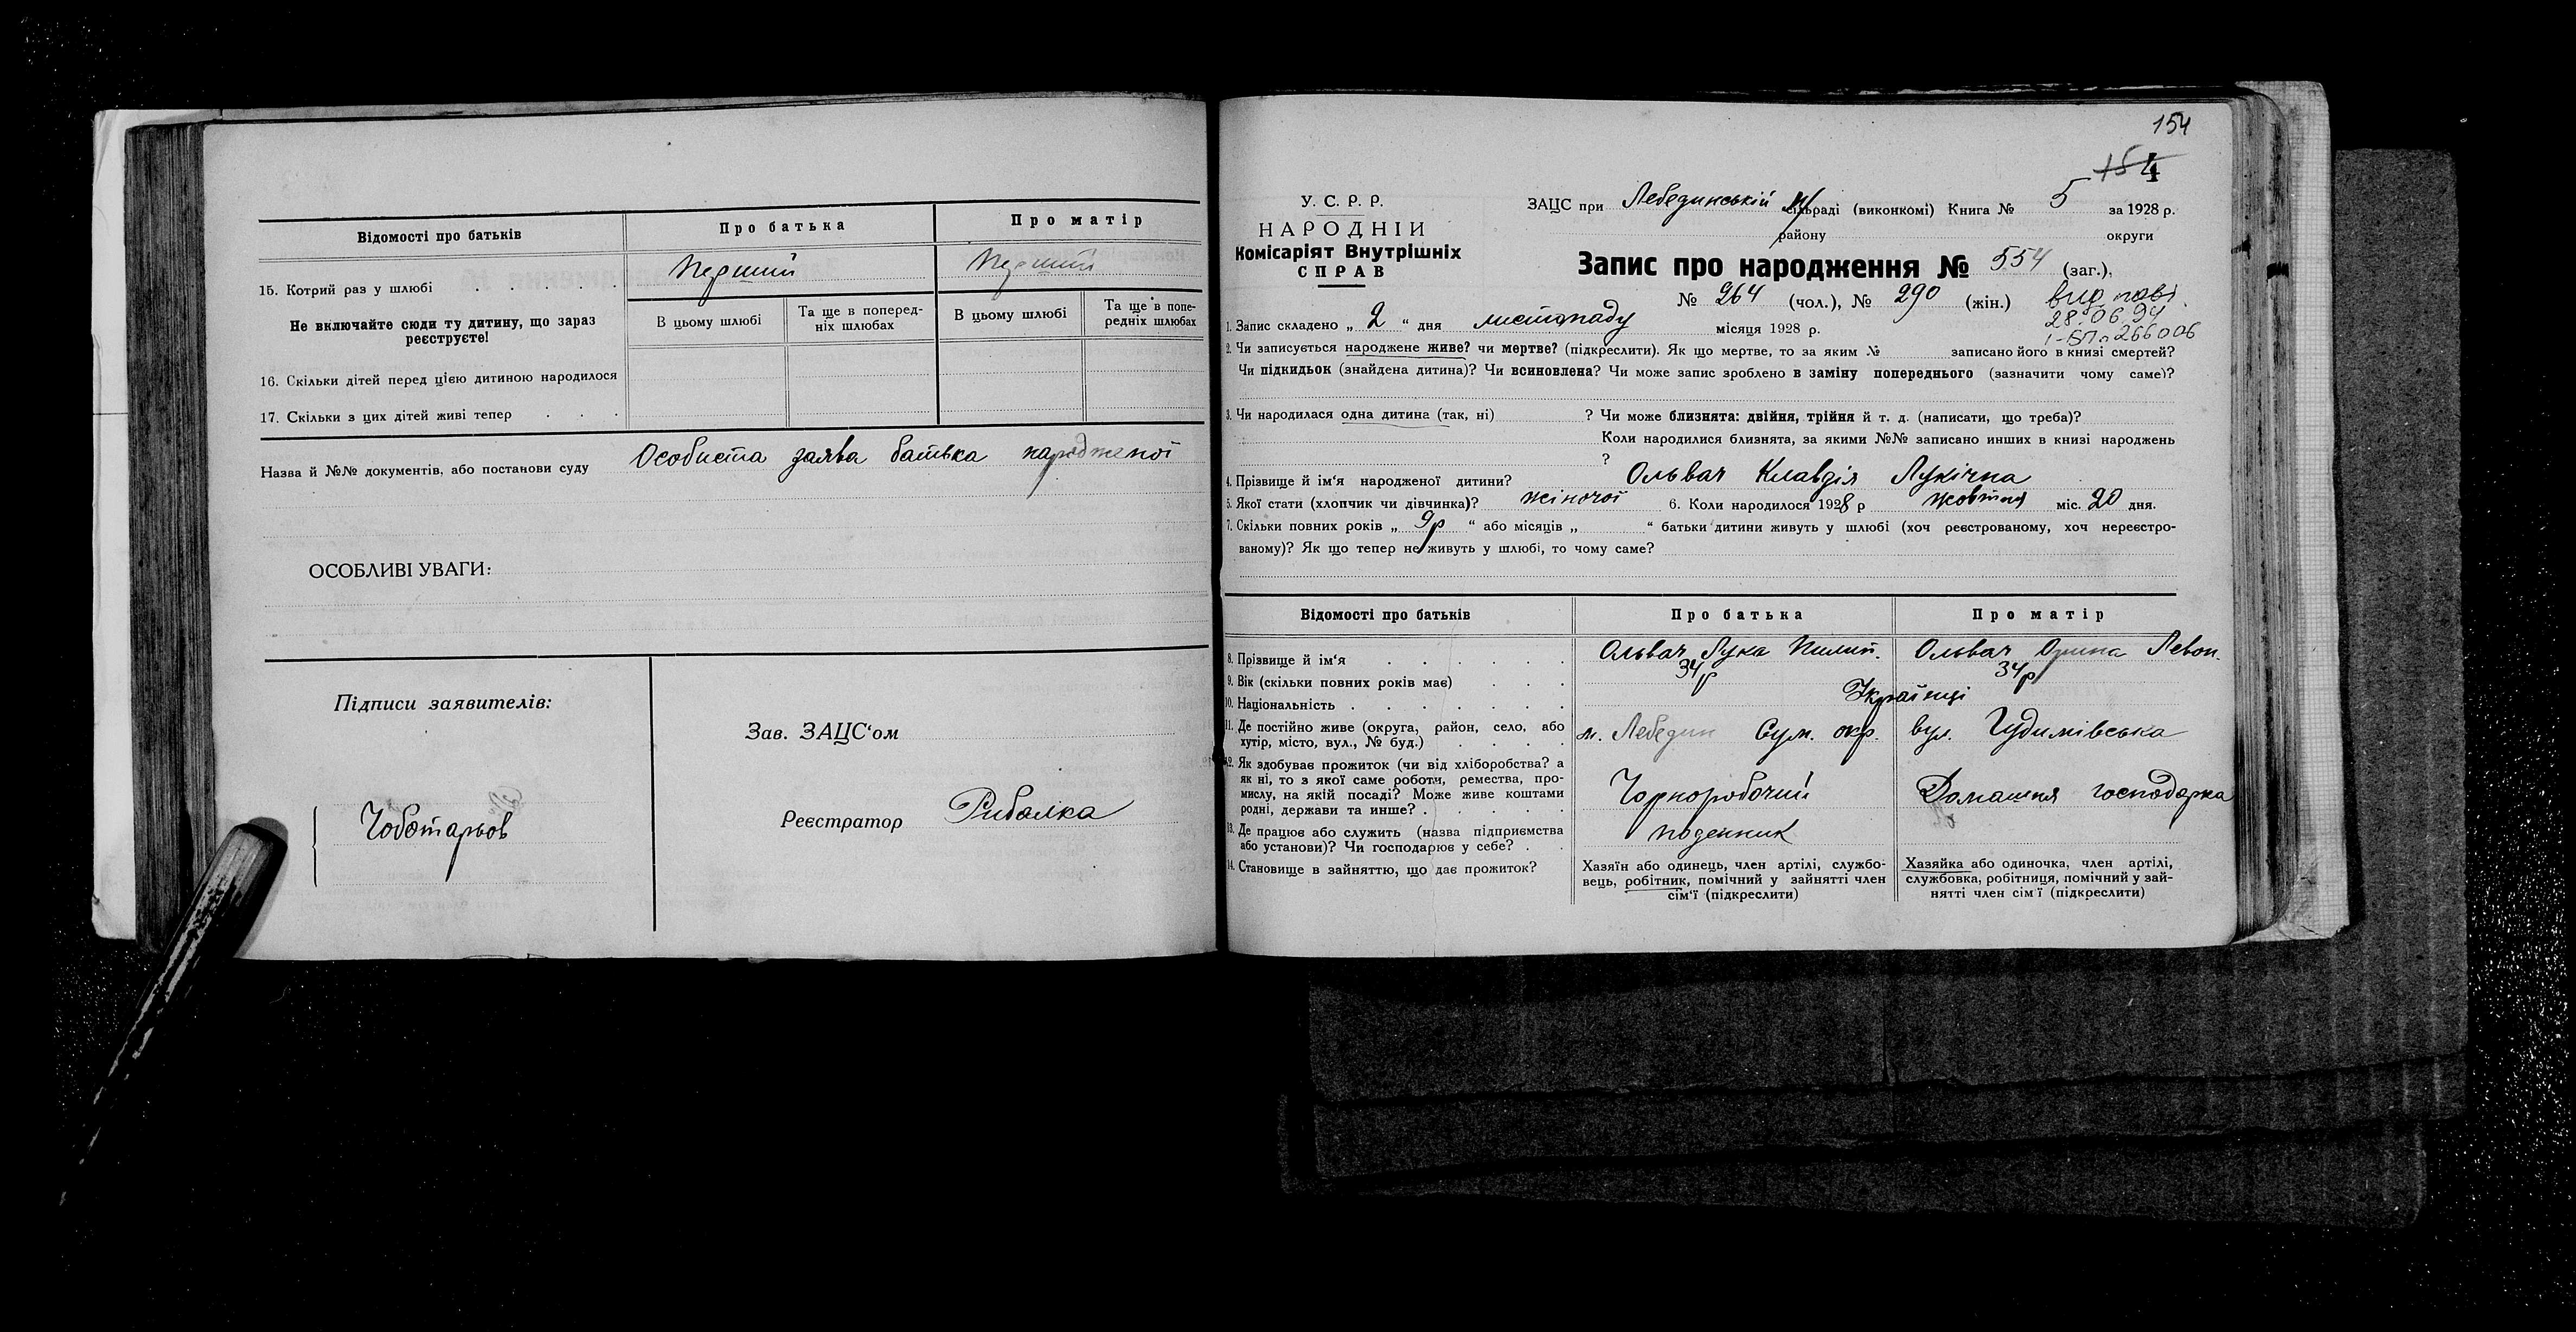 Відомості про батьків
Про батька
Про матір
15. Котрий раз у шлюбі . . . . .
Перший
Перший
Не включайте сюди ту дитину, що зараз
реєструєте!
В цьому шлюбі
Та ще в поперед-
ніх шлюбах
В цьому шлюбі
Та ще в попе-
редніх шлюбах
16. Скільки дітей перед цією дитиною народилося
17. Скільки з цих дітей живі тепер . . .
Назва й №№ документів, або постанови суду
Особиста заява батька народженої
ОСОБЛИВІ УВАГИ:
Підписи заявителів:
Чоботарьов
Зав. ЗАЦС‘ом
Реєстратор Рибалка
154
154
У. С. Р. Р.
НАРОДНІЙ
Комісаріят Внутрішніх
СПРАВ
ЗАЦС при Лебединській м/сільраді (виконкомі) Книга № 5 за 1928 р.
району округи
Запис про народження № 554 (заг.),
№ 264 (чол.), № 290 (жін.)
вид. повт.
28.06.94
266006
1. Запис складено „ 2 “ дня листопаду місяця 1928 р.
2. Чи записується народжене живе? чи мертве? (підкреслити). Як що мертве, то за яким № записано його в книзі смертей?
Чи підкидьок (знайдена дитина)? Чи всиновлена? Чи може запис зроблено в заміну попереднього (зазначити чому саме)?
3. Чи народилася одна дитина (так, ні) ? Чи може близнята: двійня, трійня й т. д. (написати, що треба)?
Коли народилися близнята, за якими №№ записано инших в книзі народжень
?
4. Прізвище й ім‘я народженої дитини? Ольвач Клавдія Лукічна
5. Якої стати (хлопчик чи дівчинка)? жіночої 6. Коли народилося 1928 р жовтня міс. 20 дня.
7. Скільки повних років „ 9р “ або місяців „ “ батьки дитини живуть у шлюбі (хоч реєстрованому, хоч нереєстро-
ваному)? Як що тепер не живуть у шлюбі, то чому саме?
Відомості про батьків
Про батька
Про матір
8. Прізвище й ім‘я . . . . . .
Ольвач Лука Пилип.
Ольвач Левон.
9. Вік (скільки повних років має) . . .
34р
34р
10. Національність . . . . . . .
Українці
11. Де постійно живе (округа, район, село, або
хутір, місто, вул., № буд.) . . . .
м. Лебедин Сум. окр. вул. Гудимівська
12. Як здобуває прожиток (чи від хліборобства? а
як ні, то з якої саме роботи, ремества, про-
мислу, на якій посаді? Може живе коштами
родні, держави та инше? . . . . .
Чорноробочий
Домашня господарка
13. Де працює або служить (назва підприємства
або установи)? Чи господарює у себе? . .
поденник
14. Становище в зайняттю, що дає прожиток?
Хазяїн або одинець, член артілі, службо-
вець, робітник, помічний у зайнятті член
сім‘ї (підкреслити)
Хазяйка або одиночка, член артілі,
службовка, робітниця, помічний у зай-
нятті член сім ї (підкреслити)